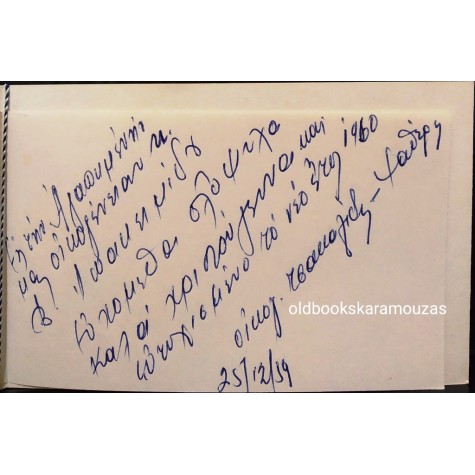 Εἰς τὴν Ἀγαπημένην
μας οἰκογένειαν κ.
Εὐχόμεθα ὁλόψυχα
καλά χριστούγεννα και
εὐτυχισμένο τό νέο ἔτος 1960
οἰκογ.
25/12/59
oldbookskaramouzas